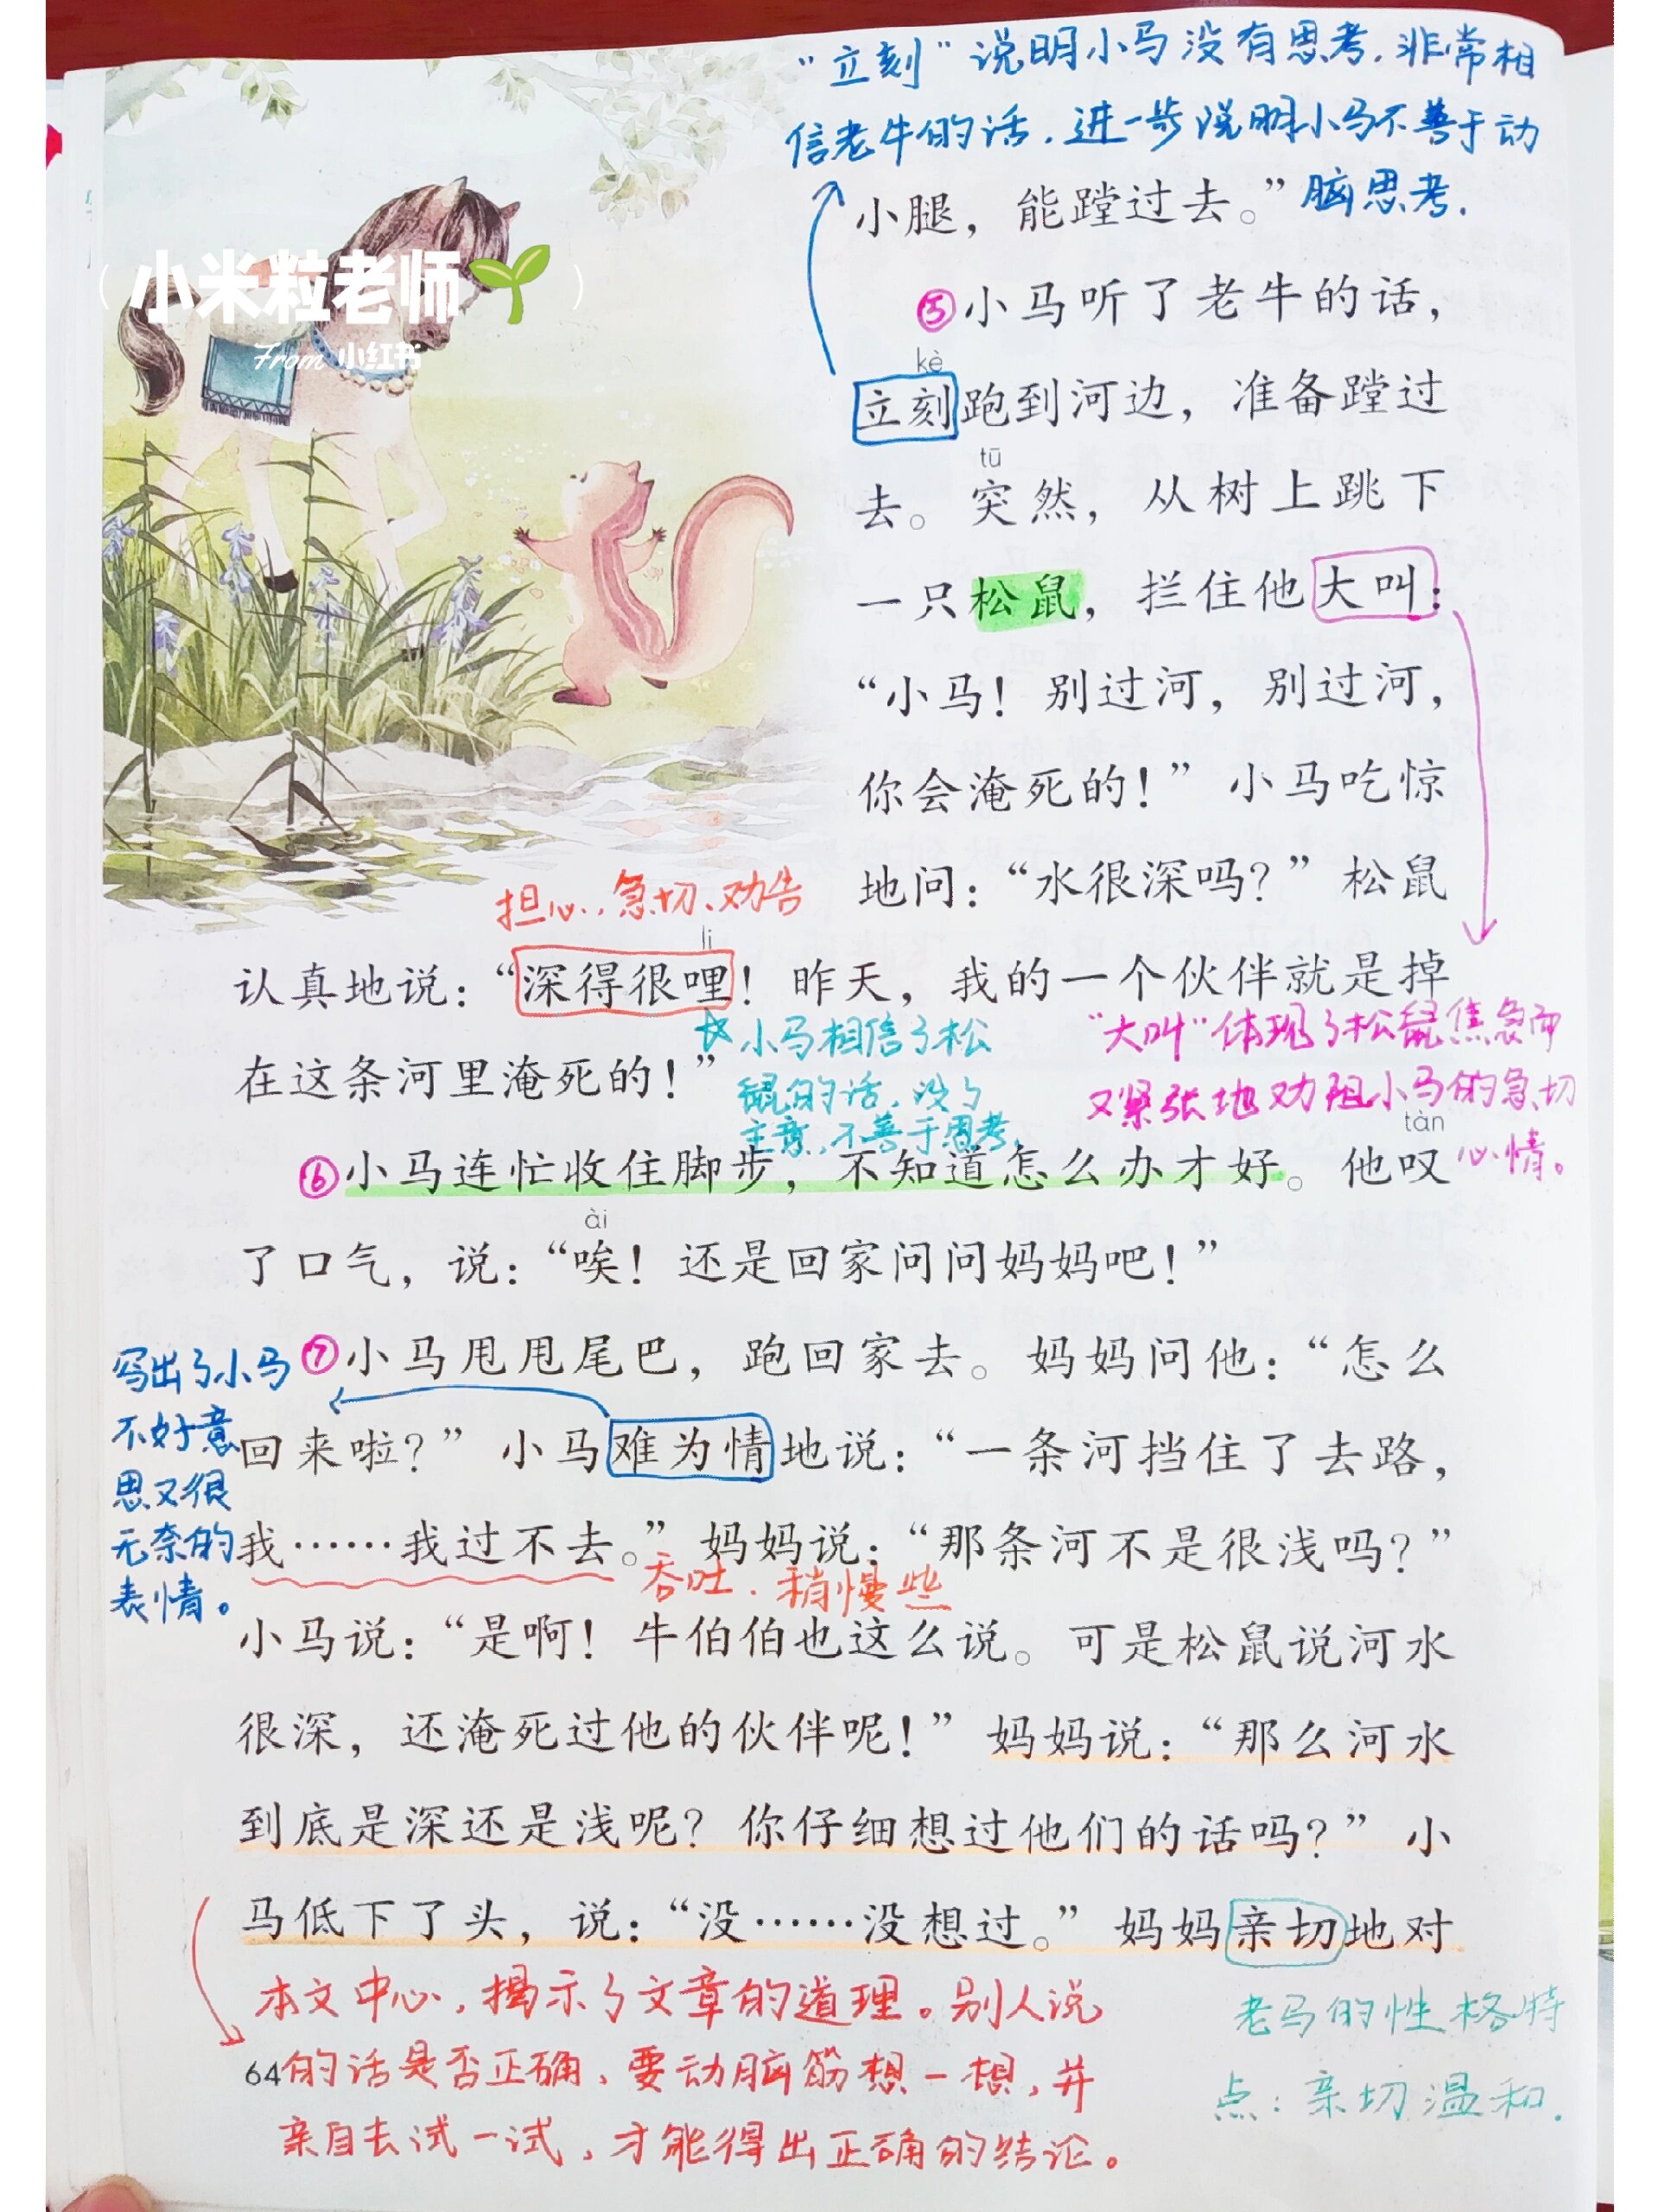 “立刻”说明小马没有思考，非常相
信老牛的话，进一步说明小马不善于动
脑思考.
小腿，能蹚过去。”
（小米粒老师）
From 小红书
⑤小马听了老牛的话，
kè
立刻跑到河边，准备蹚过
tū
去。突然，从树上跳下
一只松鼠，拦住他大叫：
“小马！别过河，别过河，
你会淹死的！”小马吃惊
地问：“水很深吗？”松鼠
担心、急切、劝告
li
认真地说：“深得很哩！昨天，我的一个伙伴就是掉
在这条河里淹死的！”
小马相信了松
鼠的话，没有
主意，不善于思考.
“大叫”体现了松鼠焦急而
又紧张地劝阻小马的急切
心情。
tàn
⑥小马连忙收住脚步，不知道怎么办才好。他叹
ài
了口气，说：“唉！还是回家问问妈妈吧！”
⑦小马甩甩尾巴，跑回家去。妈妈问他：“怎么
回来啦？”小马难为情地说：“一条河挡住了去路，
我……我过不去。”妈妈说：“那条河不是很浅吗？”
写出了小马
不好意
思又很
无奈的
表情。
吞吐、稍慢些
小马说：“是啊！牛伯伯也这么说。可是松鼠说河水
很深，还淹死过他的伙伴呢！”妈妈说：“那么河水
到底是深还是浅呢？你仔细想过他们的话吗？”小
马低下了头，说：“没……没想过。”妈妈亲切地对
本文中心，揭示了文章的道理。别人说
的话是否正确，要动脑筋想一想，并
亲自去试一试，才能得出正确的结论。
老马的性格特
点：亲切温和.
64